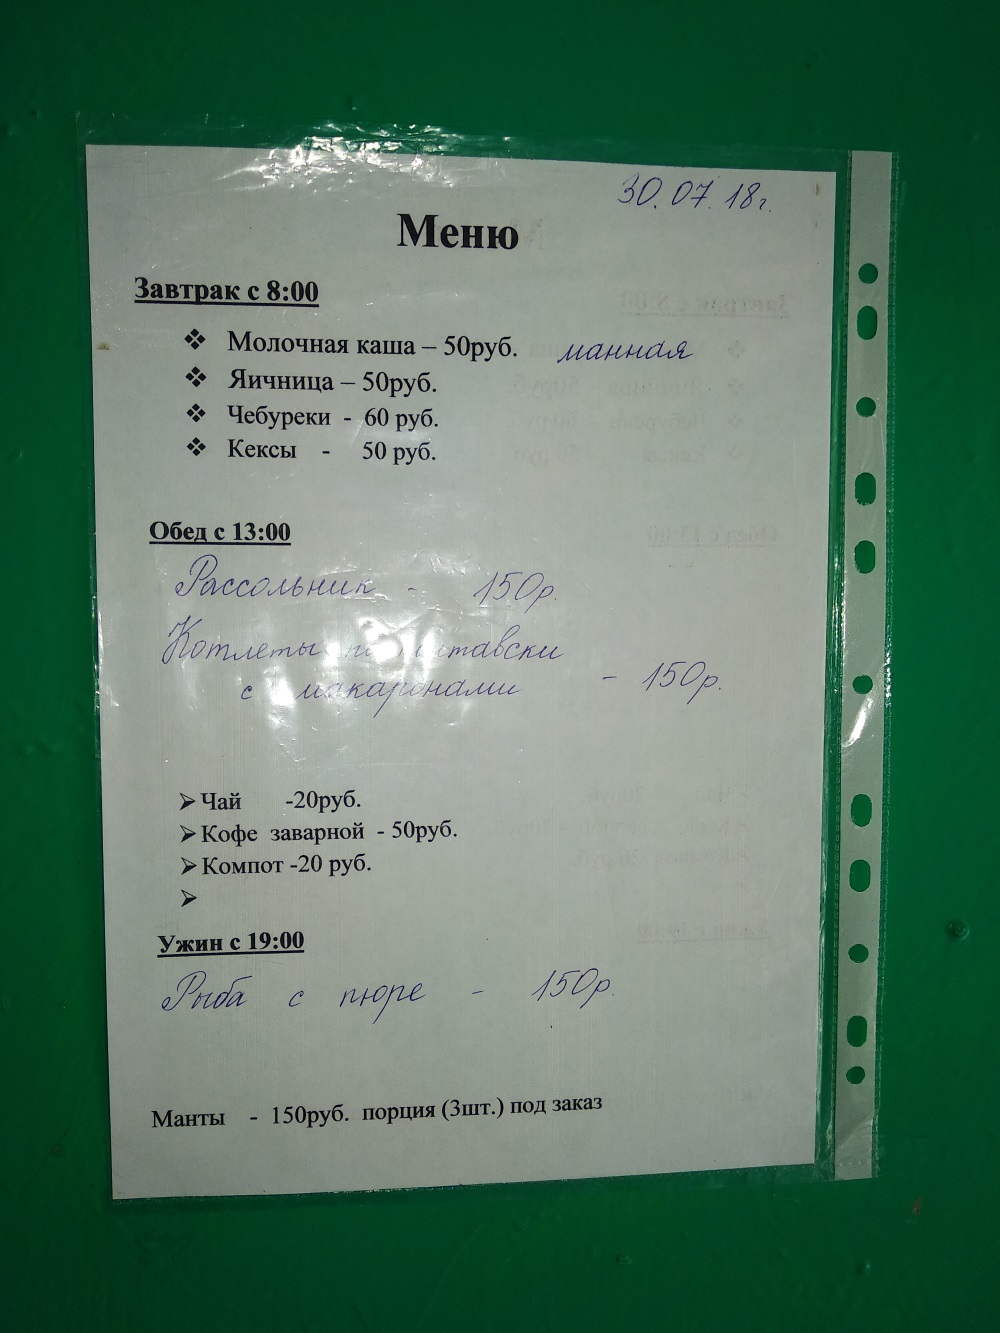 30.07.18г.
Меню
Завтрак с 8:00
❖ Молочная каша – 50руб. манная
❖ Яичница – 50руб.
❖ Чебуреки - 60 руб.
❖ Кексы - 50 руб.
Обед с 13:00
Рассольник - 150р.
Котлеты
с макаронами - 150р.
➢ Чай -20руб.
➢ Кофе заварной - 50руб.
➢ Компот -20 руб.
➢
Ужин с 19:00
Рыба с пюре - 150р.
Манты - 150руб. порция (3шт.) под заказ